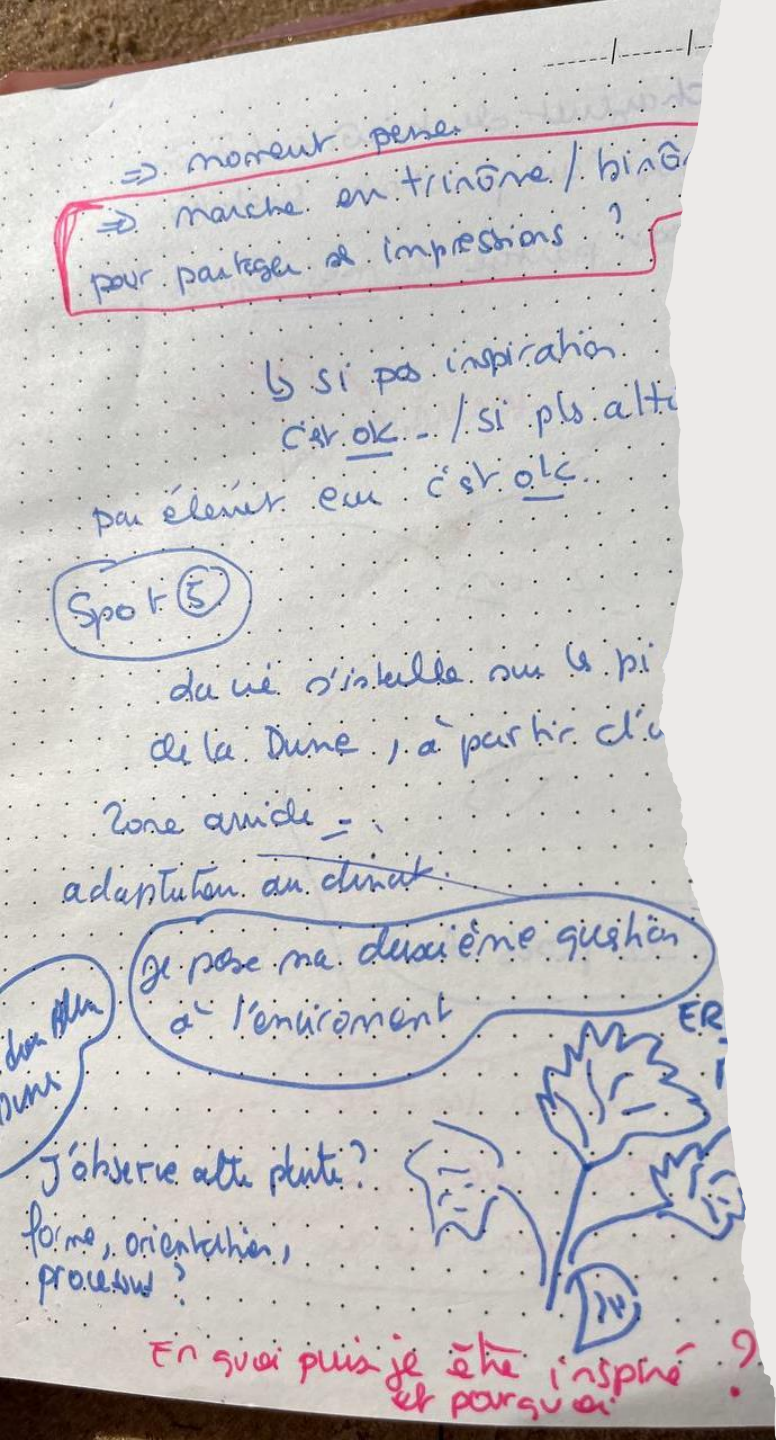 ⇒ moment pense.
⇒ marche en trinôme / binô
pour partager ses impressions ?
↳ si pas inspiration
c'est ok - / si pls atti
par élémet eux c'est ok.
Spot 5
la vie s'installe sur le pi
de la Dune, à partir d'u
zone aride
adaptation au climat.
Je pose ma deuxième question
à l'environment
Dune
ER
J'observe cette plante ?
forme, orientation,
processus ?
En quoi puis je être inspiré ?
et pourquoi